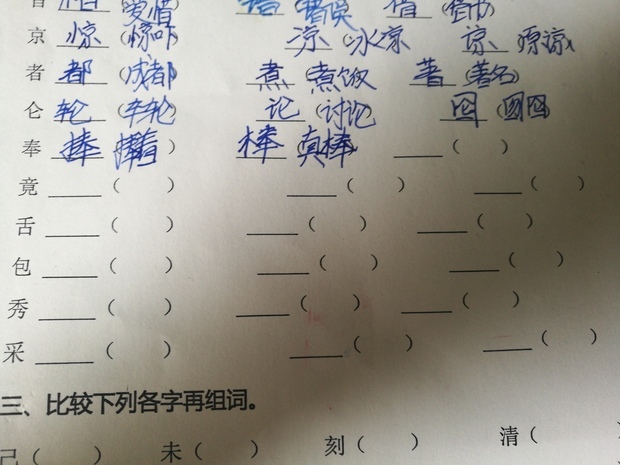 昔 惜(爱惜) 错(错误) 借(借力)
京 惊(惊吓) 凉(冰凉) 谅(原谅)
者 都(成都) 煮(煮饭) 著(著名)
仑 轮(车轮) 论(讨论) 囵(囫囵)
奉 捧(捧着) 棒(真棒) ____( )
竟 ____( ) ____( ) ____( )
舌 ____( ) ____( ) ____( )
包 ____( ) ____( ) ____( )
秀 ____( ) ____( ) ____( )
采 ____( ) ____( ) ____( )
三、比较下列各字再组词。
己( ) 未( ) 刻( ) 清(